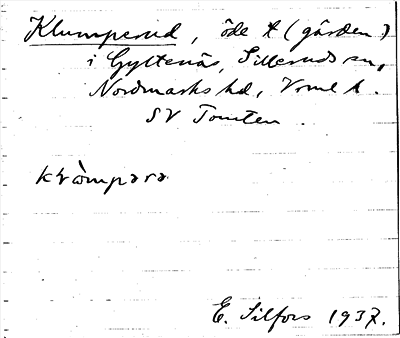 Klumperud, öde t (gården)
i Gyltenäs, Silleruds sn,
Nordmarks hd, Vrml l.
SV Tomten.
E. Silfors 1937.